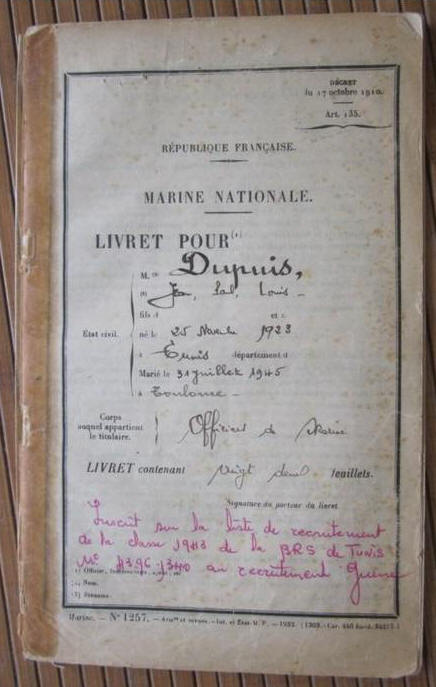 DÉCRET
du 17 octobre 1910.
Art. 135.
RÉPUBLIQUE FRANÇAISE.
MARINE NATIONALE.
LIVRET POUR (1)
M. Dupuis,
Louis
fils d et
État civil. né le 25 Novembre 1923
à Tunis département d
Marié le 31 juillet 1945
à Toulouse
Corps
auquel appartient
le titulaire.
Officiers de Marine
LIVRET contenant vingt deux feuillets.
Signature du porteur du livret
Inscrit sur la liste de recrutement
de la classe 1943 de la BRS de TUNIS
N° au recrutement Guerre
(1) Officier,
(2) Nom.
(3) Prénoms.
Marine. — N° 1257.